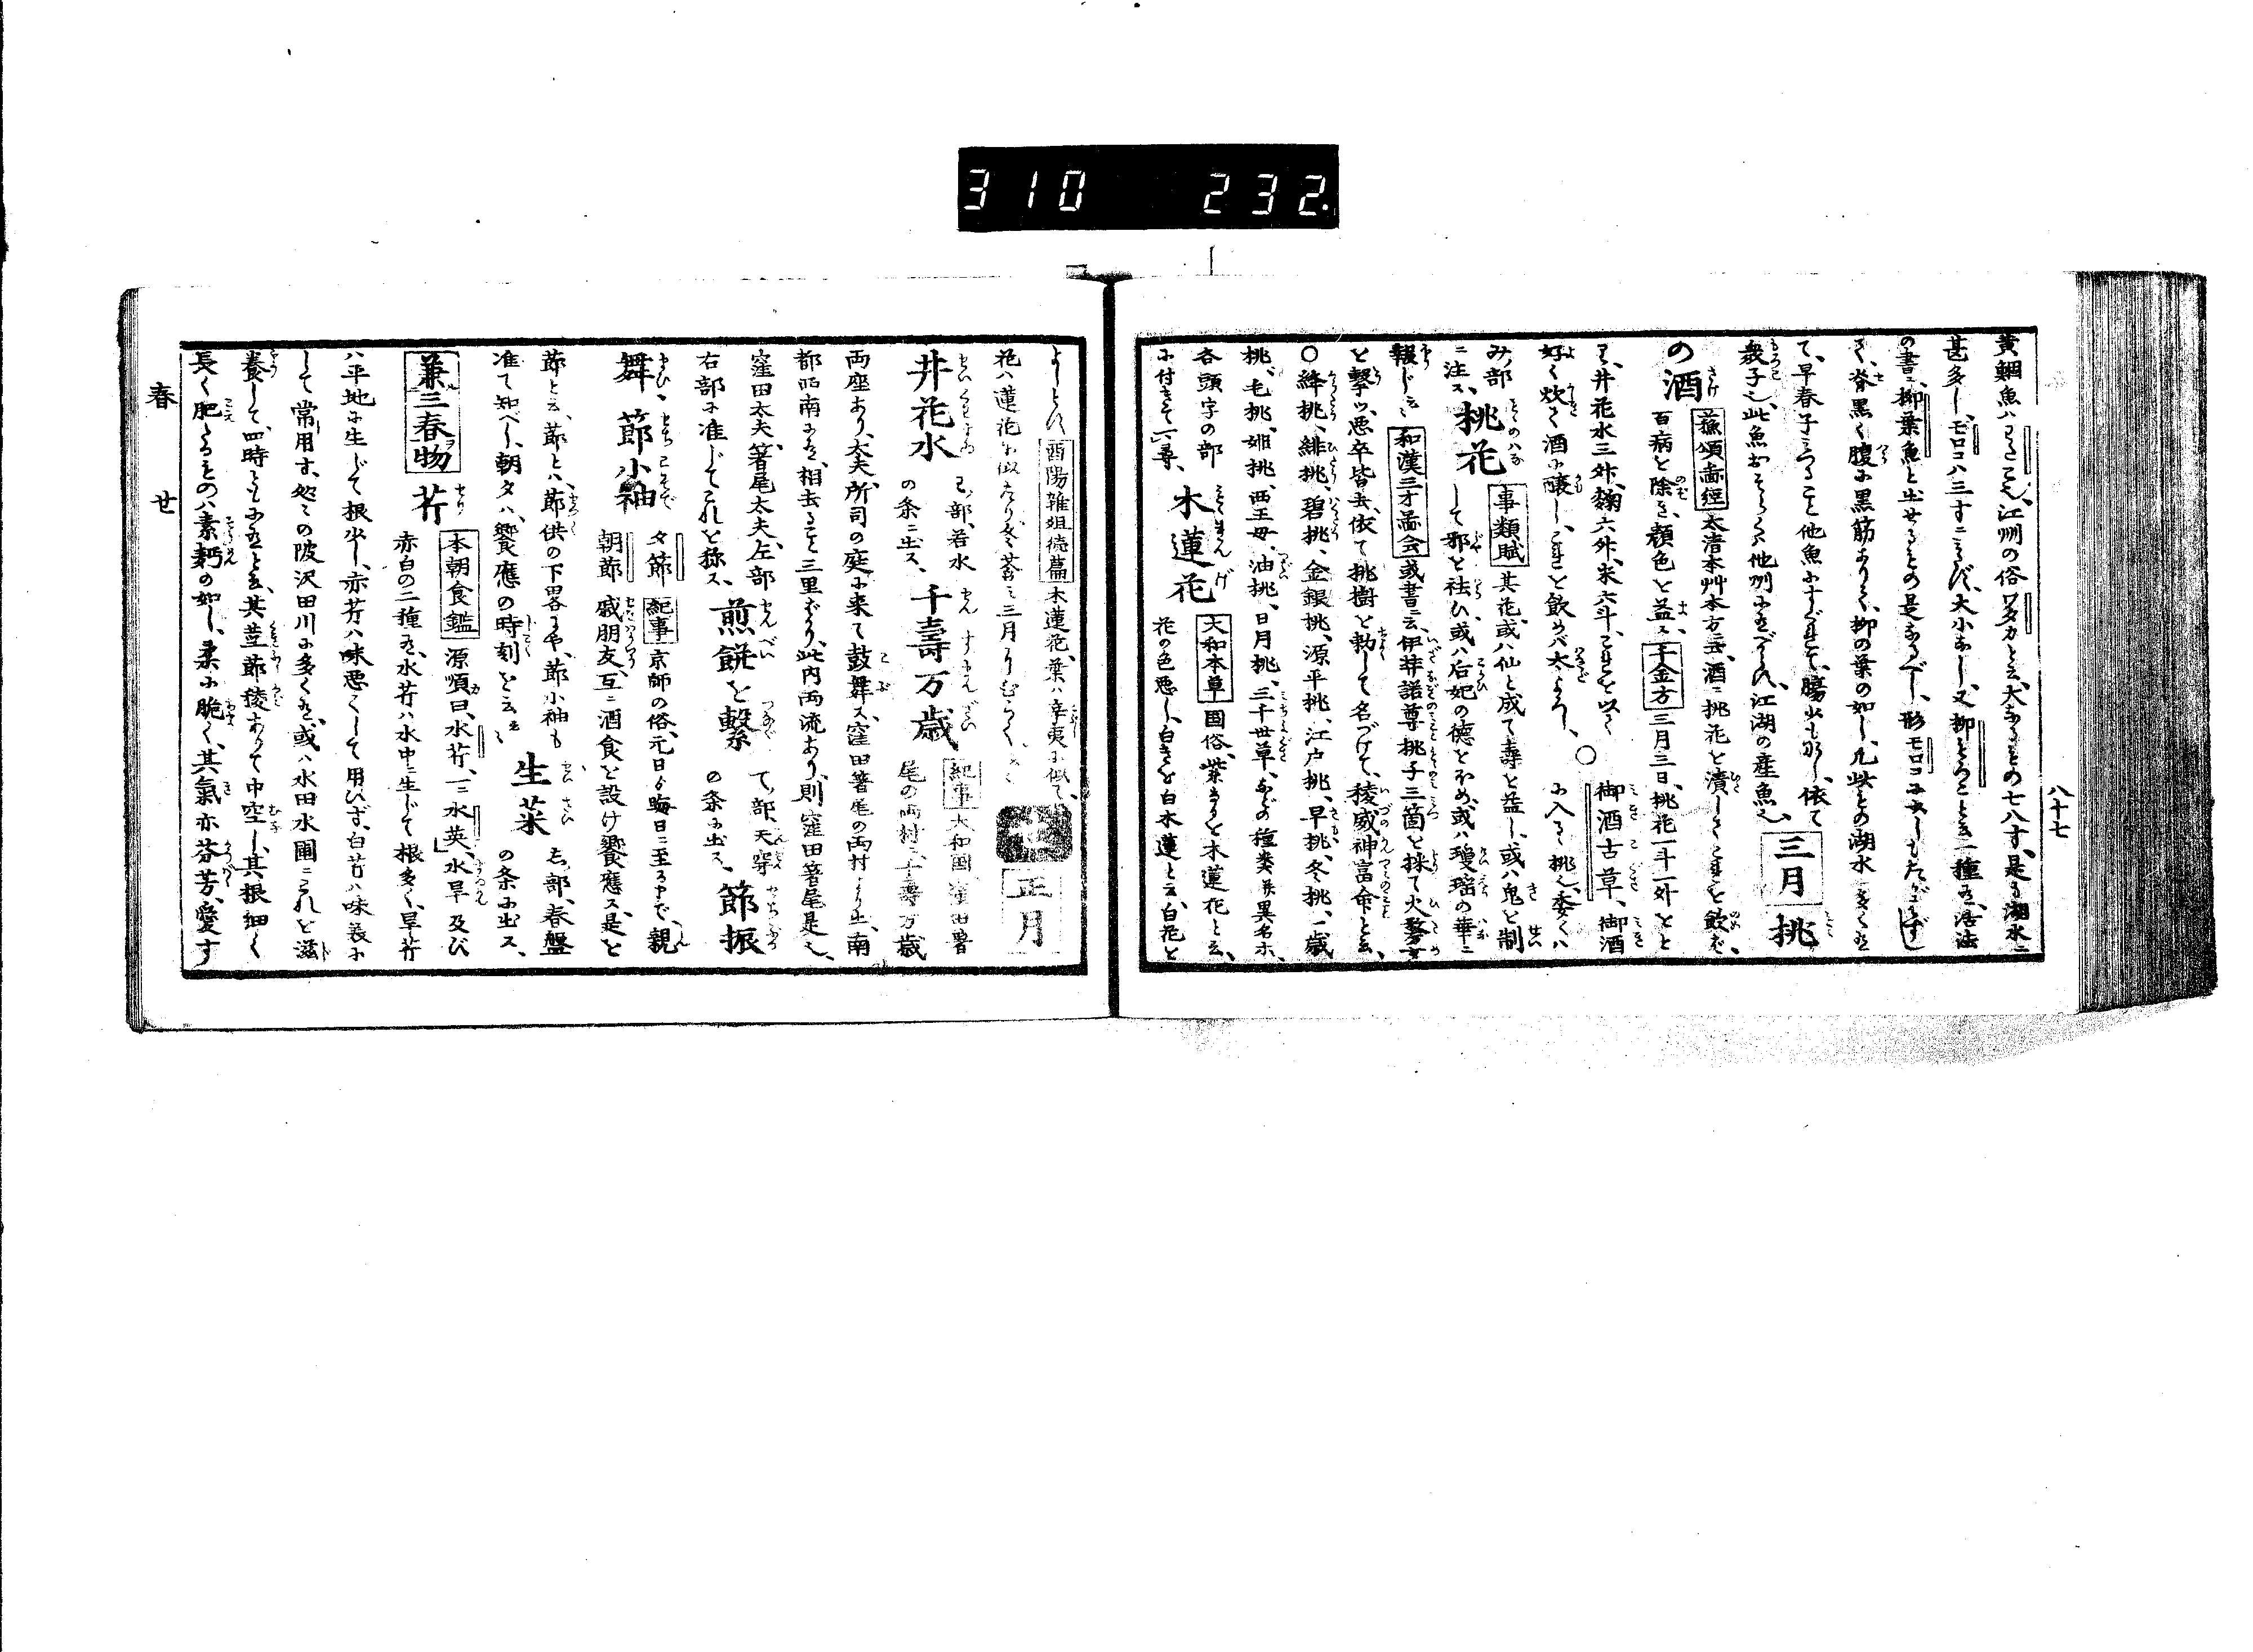 310 232.
八十七
黄鯝魚ハわたこ也、江州の俗ワタカと云、大なるもの七八寸、是も湖水ニ
甚多し、モロコハ三寸ニみたず、大小なし、又柳もろこと云一種有、活法
の書ニ、柳葉魚と出せるもの是なるべし、形モロコに
脊黒く腹に黒筋ありて、柳の葉の如し、凡此もの湖水
て、早春子みつること他魚にすぐれて、腸少もなし、依て
衆子也、此魚おそらく他州に有べからず、江湖の産魚也、 三月 桃
の酒 蘇頌啚經 太清本艸本方云、酒ニ桃花を漬してこれを飲ば、
百病を除き、顔色を益ス、千金方 三月三日、桃花一斗一升をと
り、井花水三升、麹六升、米六斗、これを以て
好く炊て酒に醸し、これを飲めバ太よろし、 ○ 御酒古草、御酒
に入るゝ桃也、委くハ
み部ニ注ス、桃花 事類賦 其花、或ハ仙と成て壽を益し、或ハ鬼を制
して邪を祛ひ、或ハ后妃の徳をほめ、或ハ瓊瑶の華ニ
報じ云〻 和漢三才啚会 或書ニ云、伊弉諾尊桃子三箇を採て
を撃ツ、悪卒皆去、依て桃樹を勅して、名づけて、稜威神富命と云、
○絳桃、緋桃、碧桃、金銀桃、源平桃、江戸桃、早桃、冬桃、一歳
桃、毛桃、姫桃、西王母、油桃、日月桃、三千世草、などの種類幷異名ホ、
各頭字の部
に付きて可尋、木蓮花 大和本草 國俗、紫なるを木蓮花と云、
花の色悪し、白きを白木蓮と云、白花を
よしとす、酉陽雜俎續篇 木蓮花、葉ハ辛夷に似て、
花ハ蓮花に似たり 三月にひらく 正月
井花水 ワ部、若水
の条ニ出ス、千壽万歳 紀事 大和国窪田箸
尾の両村ニ千壽万歳
両座あり、太夫、所司の庭に来て鼓舞ス、窪田箸尾の両村より出、南
都西南に有、相去ること三里ばかり、此内両流あり、則窪田箸尾是也、
窪田太夫、箸尾太夫、左部
右部に准じてこれを稱ス、煎餅を繫 て部、天穿
の条に出ス、節振
舞、節小袖 夕節
朝節 紀事 京師の俗、元日ゟ晦日ニ至るまで、親
戚朋友、互ニ酒食を設け饗應ス、是を
節と云、節とハ節供の下畧にや、節小袖も
准て知べし、朝夕ハ、饗應の時刻を云、 生菜 志部、春盤
の条に出ス、
兼三春物 芹 本朝食鑑 源順曰、水芹、一ニ水英、水旱及び
赤白の二種有、水芹ハ水中ニ生じて根多く、旱芹
ハ平地に生じて根少し、赤芹ハ味悪くして用ひず、白芹ハ味美に
して常用す、処〻の陂沢田川に多く有、或ハ水田水圃ニこれを滋
養して、四時ともに有と云、其莖節稜ありて中空し、其根細く
長く肥たるものハ素麪の如し、柔に脆く、其氣亦芬芳、愛す
春 せ